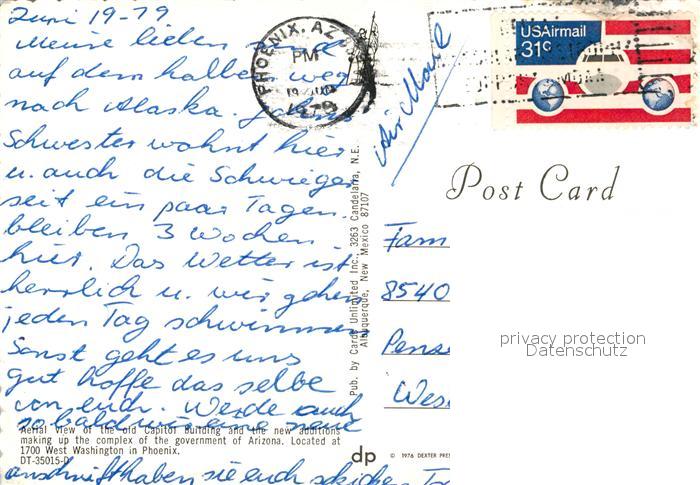 Juni 19-79
Meine lieben sind
auf dem halben weg
nach Alaska.
Schwester wohnt hier
u. auch die Schwieger
seit ein paar Tagen.
bleiben 3 Wochen
hier. Das Wetter ist
herrlich u. wir gehen
jeden Tag schwimmen
Sonst geht es uns
gut hoffe das selbe
von euch. Werde auch
so bald wir eine neue
anschrift haben sie euch schicken
Aerial view of the old Capitol Building and the new additions
making up the complex of the government of Arizona. Located at
1700 West Washington in Phoenix.
DT-35015-D
Pub. by Cards Unlimited Inc., 3263 Candelaria, N.E.
Albuquerque, New Mexico 87107
PHOENIX, AZ
PM
1979
USAirmail
31c
Air Mail
Post Card
Fam
8540
Pens
Wes
privacy protection
Datenschutz
dp
© 1976 DEXTER PRE